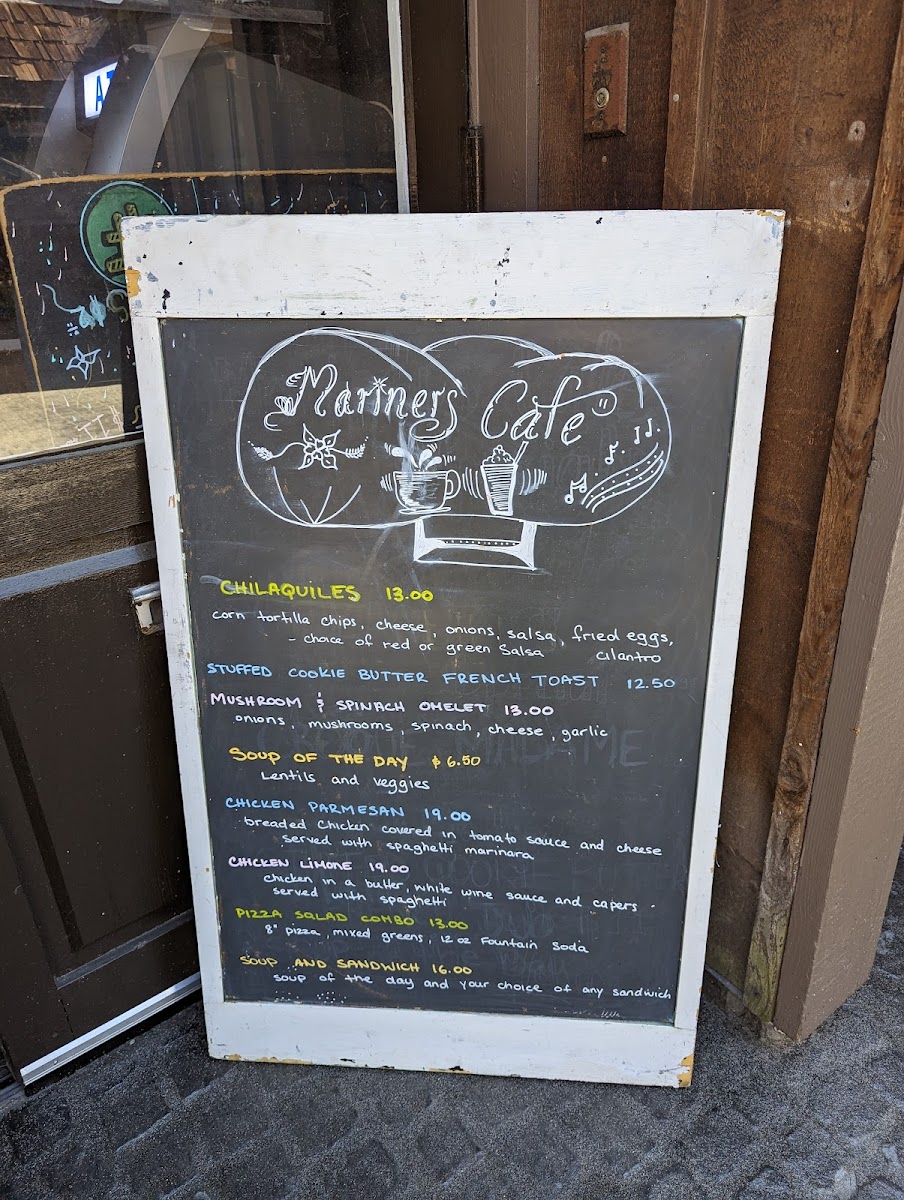 Mariners Cafe
CHILAQUILES 13.00
corn tortilla chips, cheese, onions, salsa, fried eggs,
- choice of red or green salsa cilantro
STUFFED COOKIE BUTTER FRENCH TOAST 12.50
MUSHROOM & SPINACH OMELET 13.00
onions, mushrooms, spinach, cheese, garlic
SOUP OF THE DAY $6.50
Lentils and veggies
CHICKEN PARMESAN 19.00
breaded chicken covered in tomato sauce and cheese
served with spaghetti marinara
CHICKEN LIMONE 19.00
chicken in a butter, white wine sauce and capers
served with spaghetti
PIZZA SALAD COMBO 13.00
8" pizza, mixed greens, 12 oz Fountain Soda
SOUP AND SANDWICH 16.00
soup of the day and your choice of any sandwich